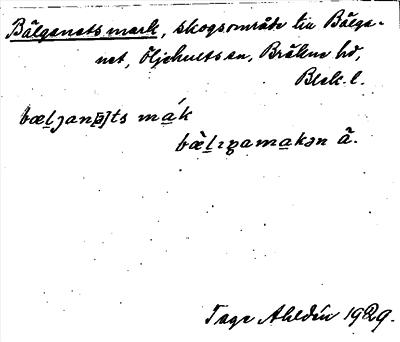 Bälganets mark, skogsområde till Bälga-
net, Öljehults sn, Bräkne hd,
Blek. l.
bæl̲ȷan[ə]ts ma̲k
bæ̀l̲ɪgama̲kən ã.
Tage Ahldén 1929.